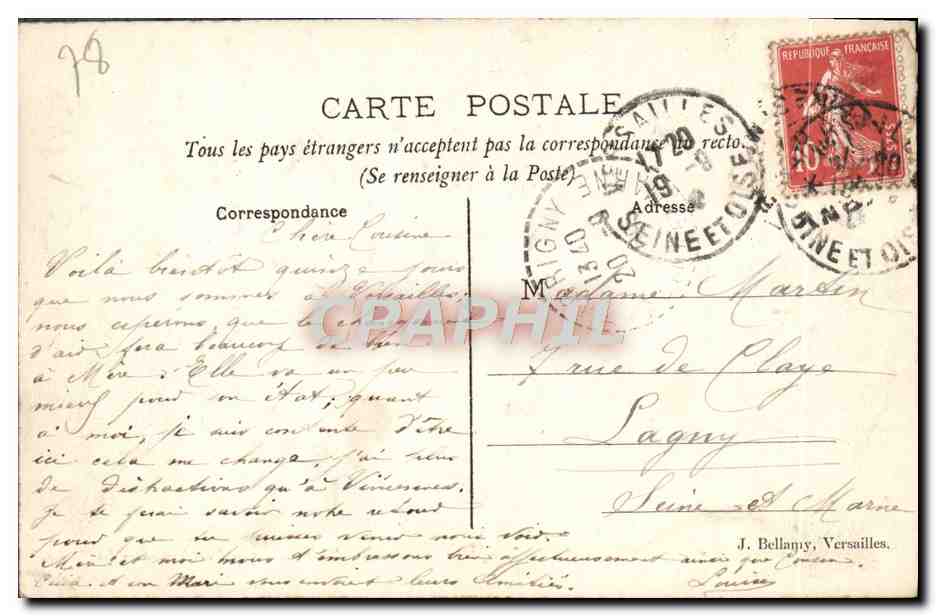 78
RÉPUBLIQUE FRANÇAISE
10
CARTE POSTALE
Tous les pays étrangers n'acceptent pas la correspondance au recto.
(Se renseigner à la Poste)
Correspondance
Adresse
VERSAILLES
17 20
19 -8
SEINE ET OISE
13 40
20 -8
SEINE ET OISE
Chère Cousine
Voilà bientôt quinze jours
que nous sommes à Versailles,
nous espérons que le changement
d'air fera beaucoup de bien
à Mère. Elle va un peu
mieux pour son état; quant
à moi, je suis contente d'être
ici cela me change, j'ai plus
de distractions qu'à Vincennes.
Je te ferai savoir notre retour
pour que tu puisses venir nous voir.
Mère et moi nous t'embrassons bien affectueusement ainsi que Cousin.
et son Mari vous envoient leurs amitiés.
Louise
Madame Martin
7 rue de Claye
Lagny
Seine et Marne
CPAPHIL
J. Bellamy, Versailles.